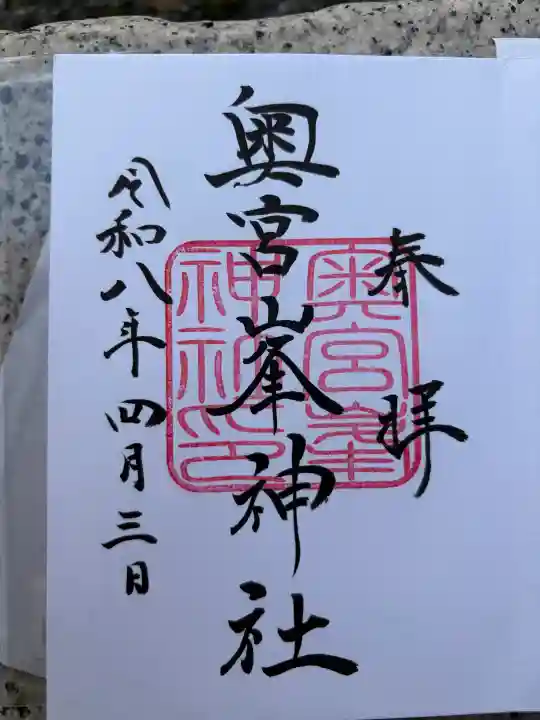 奉拝
奥宮峯神社
奥宮峯
神社印
令和八年四月三日